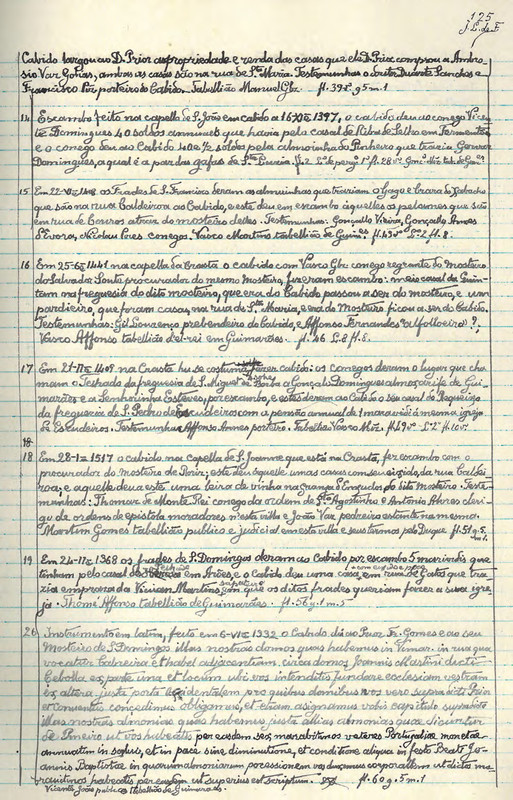 125
J. L. de F.
Cabido largou ao D. Prior a propriedade e renda das casas que elle D. Prior comprou a Ambro-
sio Vaz Golias, ambas as casas são na rua de S.ta Maria. Testemunhas o doutor Duarte Sanches e
Francisco Paz porteiro do Cabido. Tabellião Manuel Glz. fl. 39 g. 5 m. 1
14 Escambo feito na capella de S. João em cabido a 16 1397, o cabido deu ao conego Vicen-
te Domingues 40 soldos annuaes que havia pelo casal de Riba de Selho em Fermentões
e o conego deu ao Cabido 40 e ½ soldos pela almoinha do Pinheiro que trazia Gonçalo
Domingues, a qual é a par das gafas de S.ta Luzia. fl. 28
15 Em 22-VI-1408 os Frades de S. Francisco deram as almuinhas que traziam o Gago e
que são na rua Caldeiroa ao Cabido, e este deu em escambo áquelles os pelames que são
em rua de Couros atraz do mosteiro delles. Testemunhas: Gonçallo Vieira, Gonçalo Annes
d'Evora, Nicolau Pires conego. Vasco Martins tabellião de Guim.es fl. 49 v. L.º 2 fl. 8.
16 Em 25-6-1441 na capella da Crasta o cabido com Vasco Glz conego regrante do Mosteiro
do Salvador Souto procurador do mesmo Mosteiro, fizeram escambo: meio casal da Quin-
tam na freguesia do dito mosteiro, que era do Cabido passou a ser do mosteiro, e um
pardieiro, que foram casas, na rua de S.ta Maria, e era do Mosteiro ficou a ser do Cabido.
Testemunhas: Gil Lourenço prebendeiro do Cabido, e Affonso Fernandes (Alfolloeiro)?,
Vasco Affonso tabellião d'el-rei em Guimarães. fl. 46 L. 8 fl. 8.
17 Em 21-II-1409 na Crasta hu se costuma fazer cabido: os conegos deram o lugar que cha-
mam o Telhado da freguesia de S. Miguel de Borba a Gonçalo Domingues almoxarife de Gui-
marães e a Senhorinha Esteves, por escambo, e estes deram ao Cabido o seu casal do Requeixo
da freguesia de S. Pedro de Escudeiros com a pensão annual de 1 maravidi á mesma igreja
de Escudeiros. Testemunha Affonso Annes porteiro. Tabellião Vasco Miz. fl. 49 v. L.º 2 fl. 10 v.
18
18 Em 28-1-1517 o cabido, na capella de S. Joanne que está na Crasta, fez escambo com o
procurador do Mosteiro de Roriz; este deu áquelle umas casas com seu eixido, na rua Caldei-
roa, e aquelle deu a este uma leira de vinha na granja d'Ençudos do dito Mosteiro. Teste-
munhas: Thomaz de Monte Rei conego da ordem de S.to Agostinho e Antonio Alvres cleri-
go de ordens de epistola moradores n'esta villa e João Vaz pedreiro estante na mesma.
Martim Gomes tabellião publico e judicial em esta villa e seus termos pelo Duque. fl. 51 g. 5 m. 1.
19 Em 24-11-1368 os frades de S. Domingos deram ao Cabido por escambo 5 maravidis que
tinham pelo casal de em Atães, e o Cabido deu uma casa, em rua de Gatos que tra-
zia emprazada Vivian Martins com que os ditos frades queriam fazer a sua igre-
ja. Thomé Affonso tabellião de Guimarães. fl. 56 g. 1 m. 5
20 Instrumento em latim, feito em 6-VI-1332 o Cabido dá ao Prior Fr. Gomes e ao seu
Mosteiro de S. Domingos illas nostras domos quas habemus in Vimar. in rua qua
vocatur Cabreira et habet adjacentiam, circa domos Joannis Martini dicti
Cebolla ex parte una et locum ubi vos intenditis fundare ecclesiam vestram
ex altera juxta porta occidentalem pro quibus domibus vos vero supra dicti Prior
et Conventus concedimus obligamus, et etiam asignamus vobis capitulo supradicto
illas nostras almonias quas habemus juxta allias almonias qua dicuntur
de Pineiro ut vos habeatis per eas dem sex marabitinos veteres Portugaliae monetae
annuatim in salvis, et in pace sine diminutione, et conditione aliqua in festo Beati Jo-
annis Baptistae in quarum almoniarum possessionem vos ducimus corporallem ut dictos ma-
rabitinos habeatis per easdem ut superius est scriptum. fl. 60 g. 5 m. 1
Vicente João publico tabellião de Guimarães.